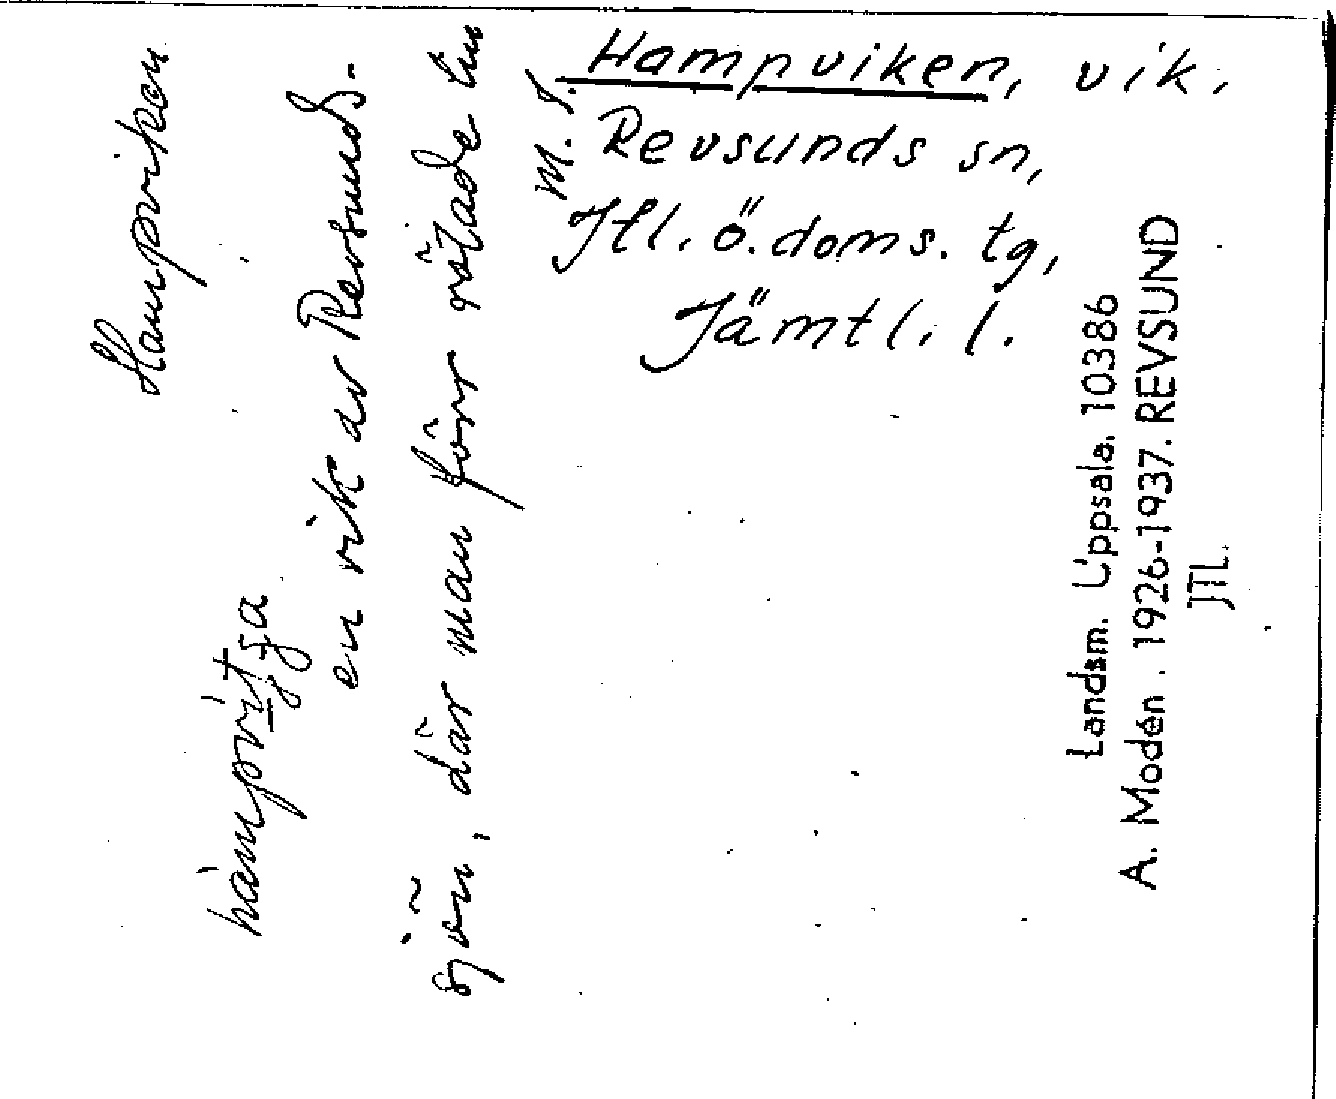 Hampviken, vik,
Revsunds sn,
Jtl. ö. doms. tg,
Jämtl. l.
Hampviken
en vik av Revsunds-
sjön, där man förr rötade lin
M. T.
Landsm. Uppsala. 10386
A. Modén. 1926-1937. REVSUND
JTL.